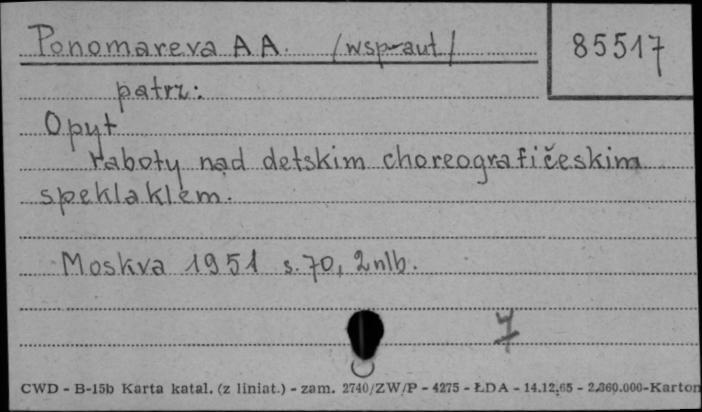 Ponomareva A A. /wsp-aut/
85517
patrz:
Opyt
raboty nad detskim choreografičeskim
speklaklem.
Moskva 1951 s. 70, 2 nlb.
7
CWD - B-15b Karta katal. (z liniat.) - zam. 2740/ZW/P - 4275 - ŁDA - 14.12.65 - 2.860.000-Karton